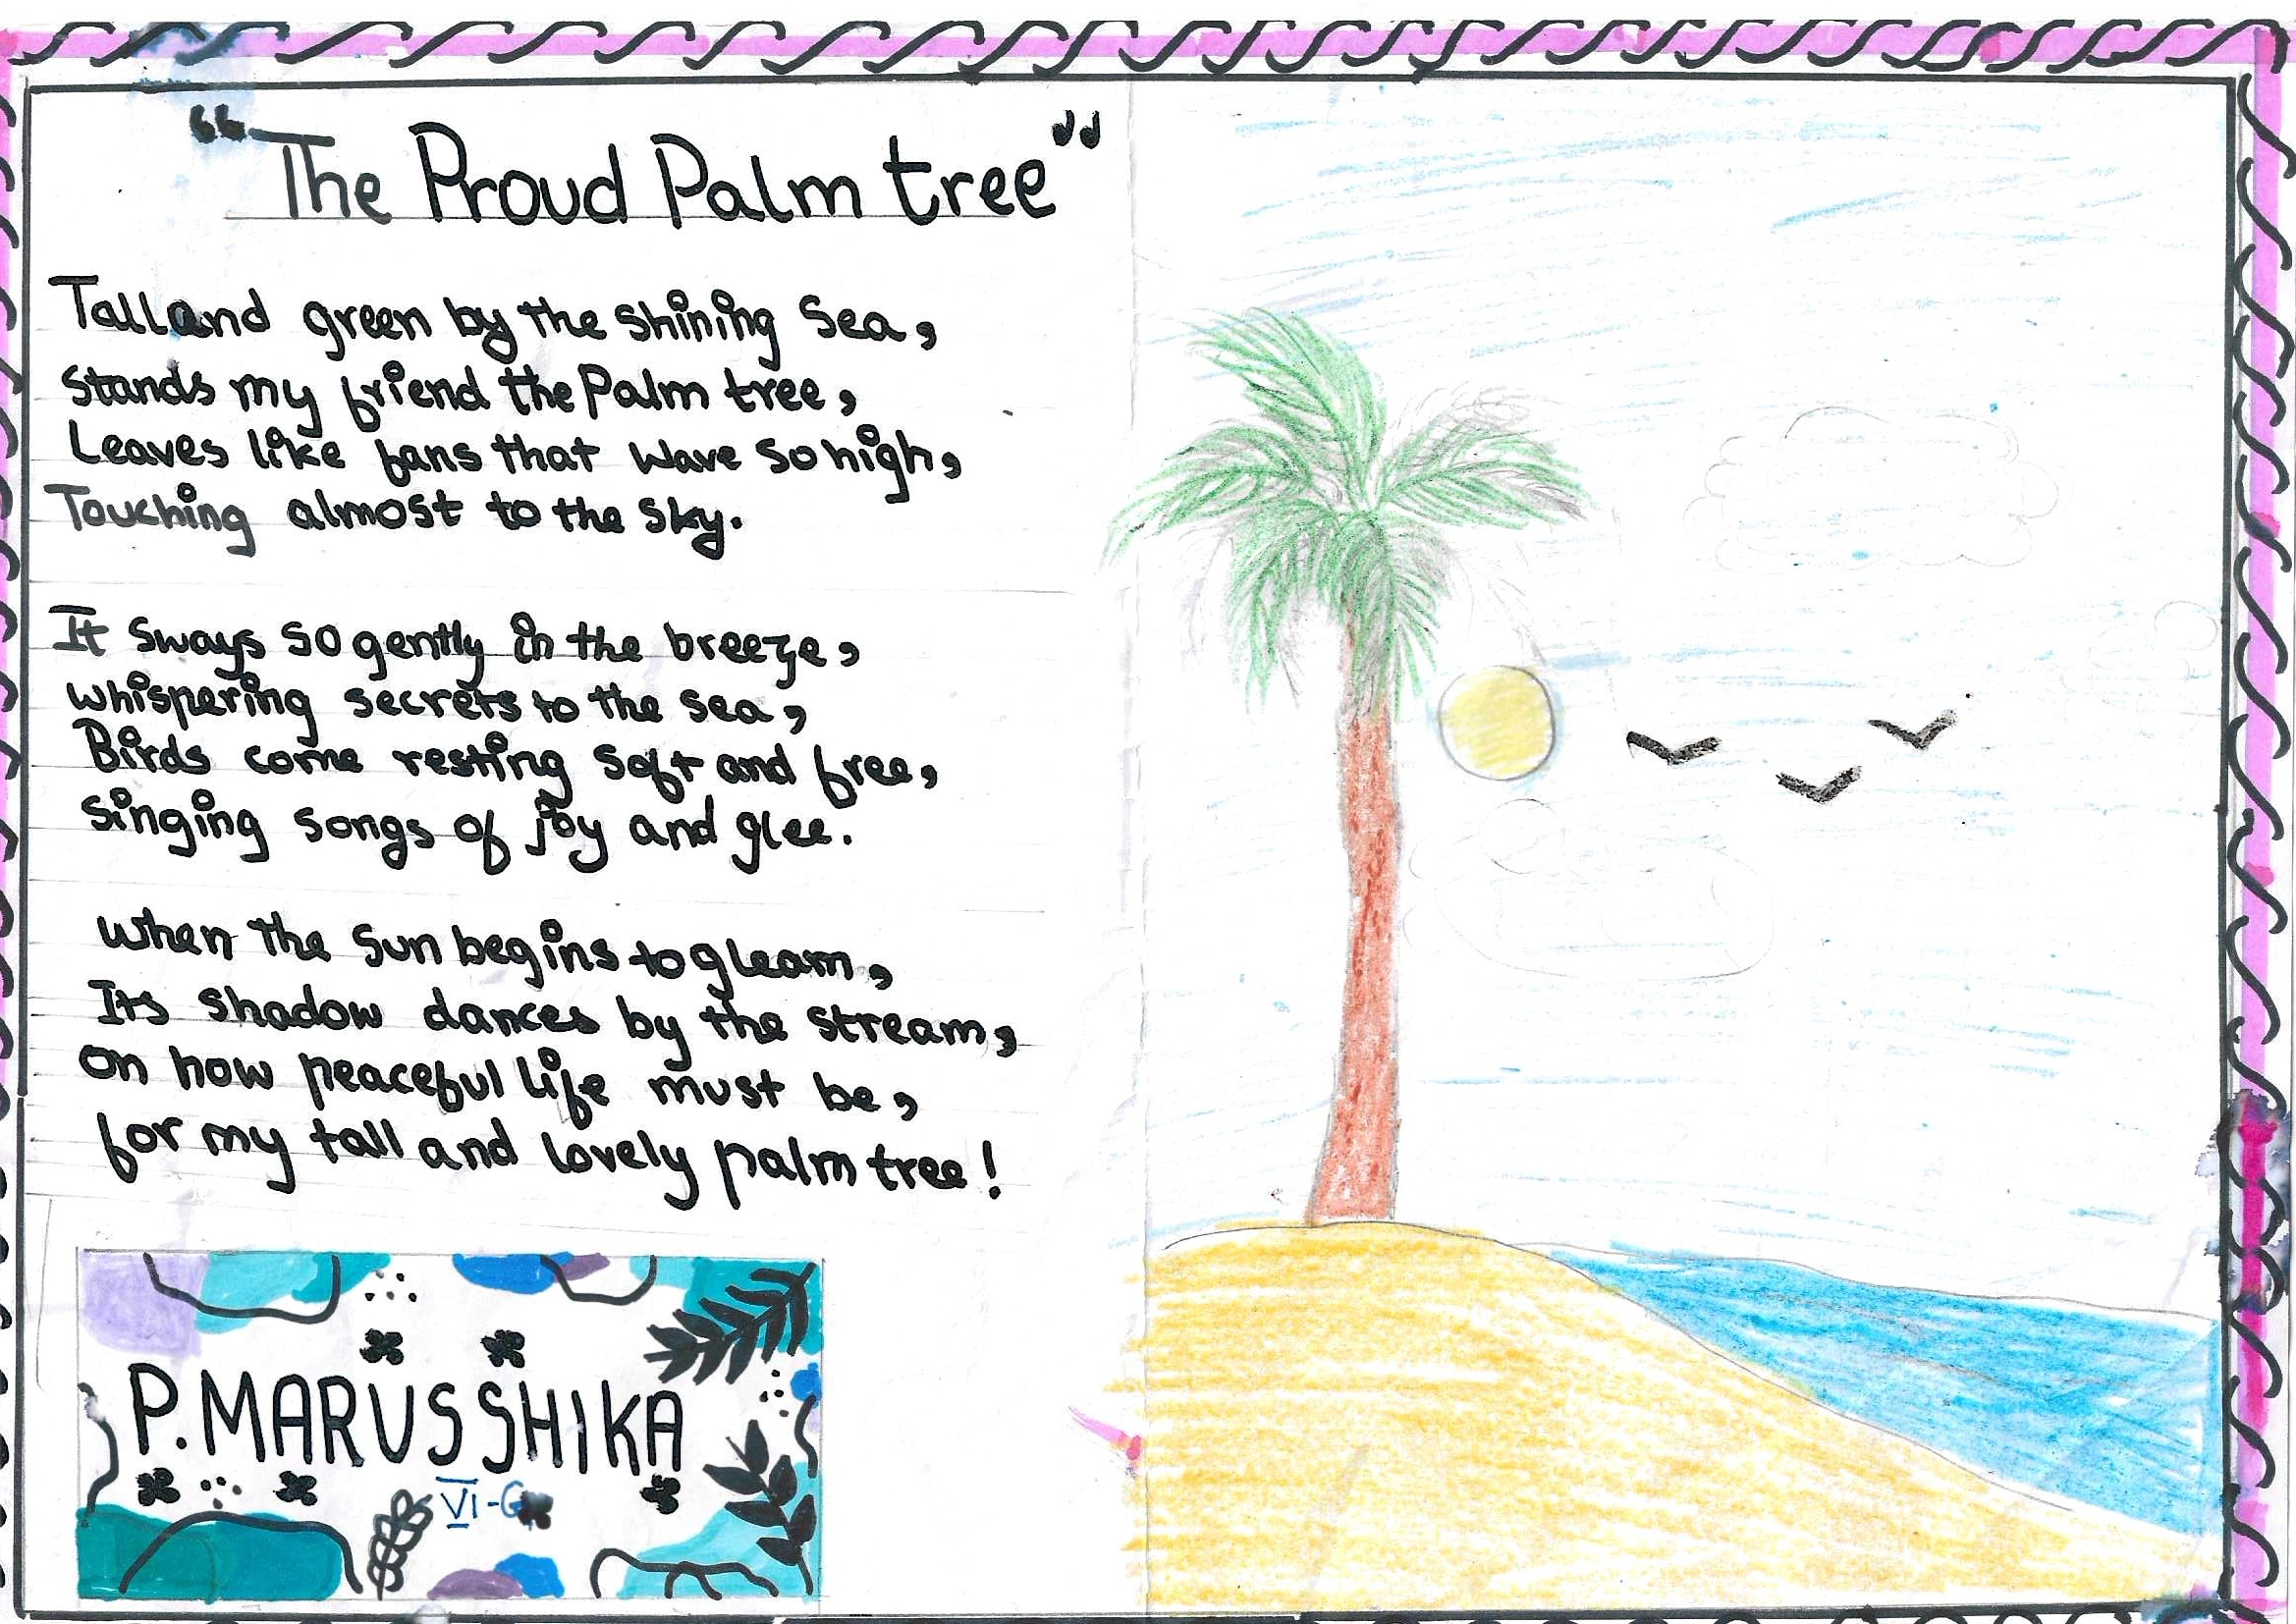 "The Proud Palm tree"
Tall and green by the shining Sea,
Stands my friend the Palm tree,
Leaves like fans that wave so high,
Touching almost to the sky.
It Sways so gently in the breeze,
whispering secrets to the sea,
Birds come resting soft and free,
singing songs of joy and glee.
when the sun begins to gleam,
Its shadow dances by the stream,
on how peaceful life must be,
for my tall and lovely palm tree!
P.MARUSSHIKA
VI-G